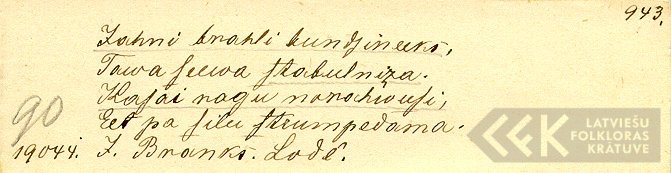 943.
Jahni brahli bundsineeks,
Tawa seewa stabulniza.
Kasai ragu norahwusi,
Eet pa silu strumpedama.
90
19044. J. Branks. Lodē.
LATVIEŠU
FOLKLORAS
KRĀTUVE